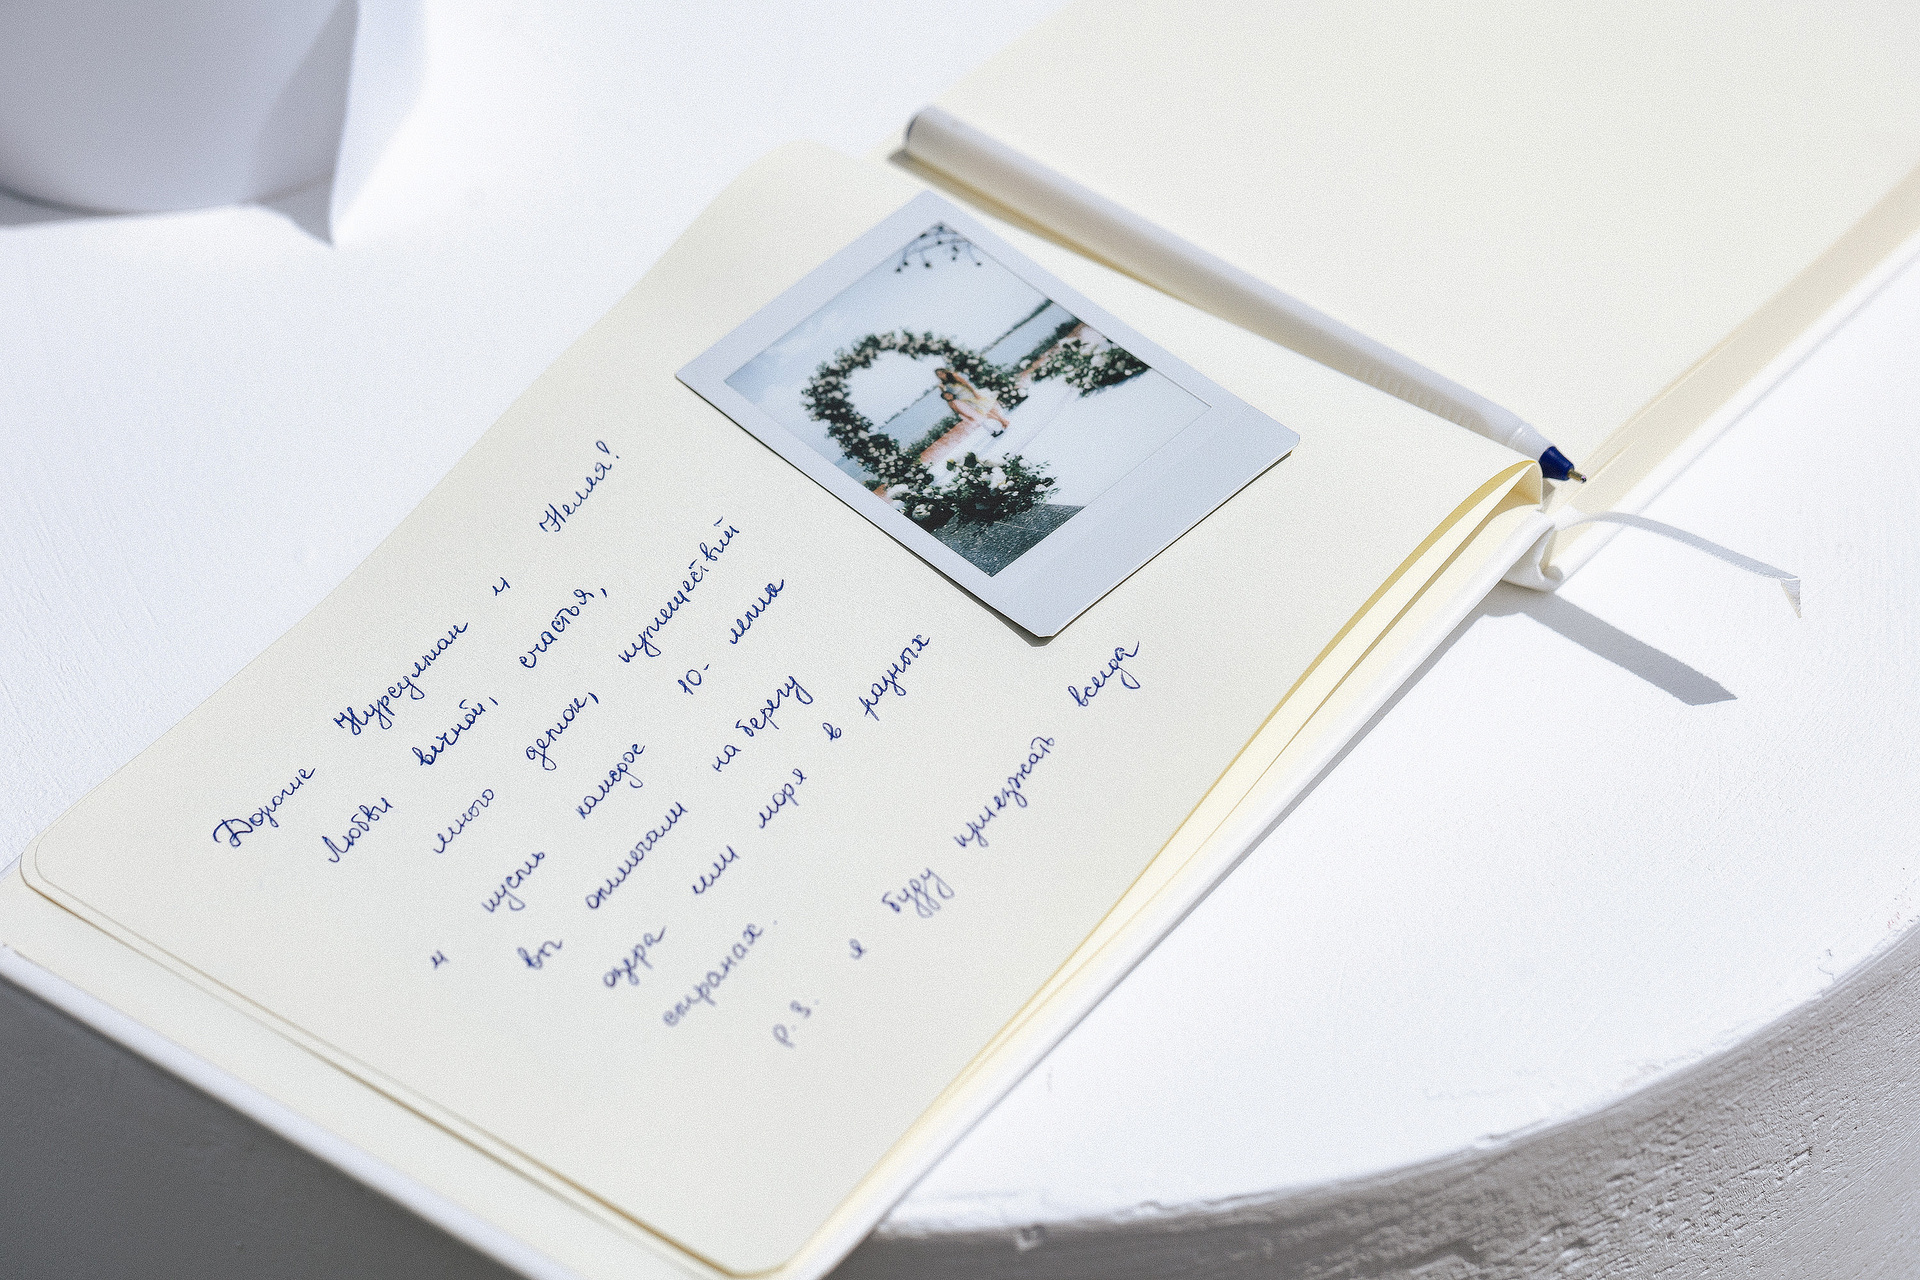 Дорогие Нурсултан и Нелля!
Любви вечной, счастья,
много деток, путешествий
и пусть каждое 10-летие
вы отмечали на берегу
озера или моря в разных
странах.
P.S. я буду приезжать всегда